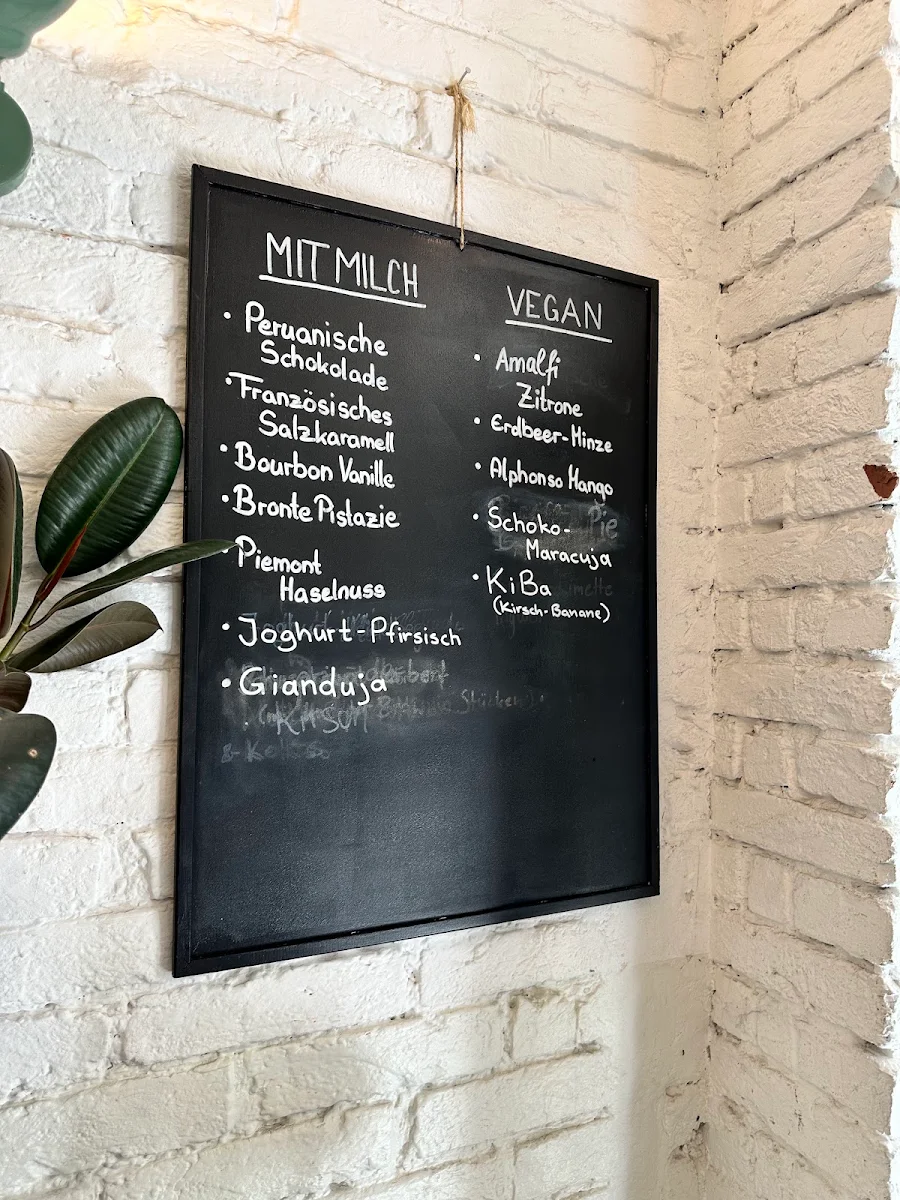 MIT MILCH
• Peruanische
Schokolade
• Französisches
Salzkaramell
• Bourbon Vanille
• Bronte Pistazie
• Piemont
Haselnuss
• Joghurt-Pfirsisch
• Gianduja
Kirsch
VEGAN
• Amalfi
Zitrone
• Erdbeer-Minze
• Alphonso Mango
• Schoko-
Maracuja
• KiBa
(Kirsch-Banane)